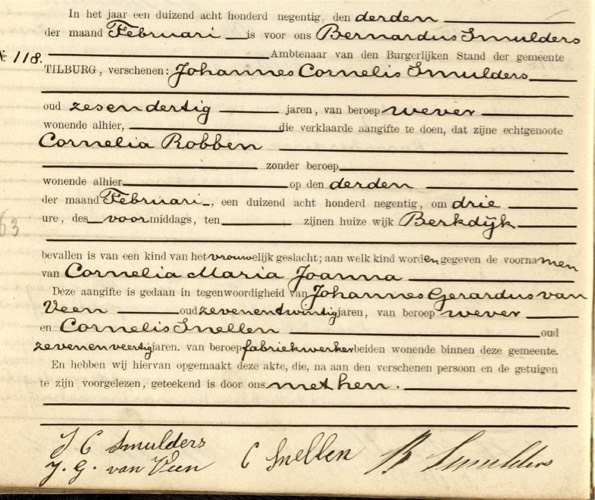 In het jaar een duizend acht honderd negentig, den derden
der maand Februari is voor ons Bernardus Smulders
№ 118. Ambtenaar van den Burgerlijken Stand der gemeente
TILBURG, verschenen: Johannes Cornelis Smulders
oud zesendertig jaren, van beroep wever
wonende alhier, die verklaarde aangifte te doen, dat zijne echtgenoote
Cornelia Robben
zonder beroep
wonende alhier op den derden
der maand Februari, een duizend acht honderd negentig, om drie
ure, des voormiddags, ten zijnen huize wijk Berkdijk
63
bevallen is van een kind van het vrouwelijk geslacht; aan welk kind worden gegeven de voornamen
van Cornelia Maria Joanna
Deze aangifte is gedaan in tegenwoordigheid van Johannes Gerardus van
Veen oud zevenentwintig jaren, van beroep wever
en Cornelis Snellen oud
zevenenveertig jaren. van beroep fabriekwerker beiden wonende binnen deze gemeente.
En hebben wij hiervan opgemaakt deze akte, die, na aan den verschenen persoon en de getuigen
te zijn voorgelezen, geteekend is door ons met hen.
J C Smulders
J. G. van Veen C Snellen B Smulders